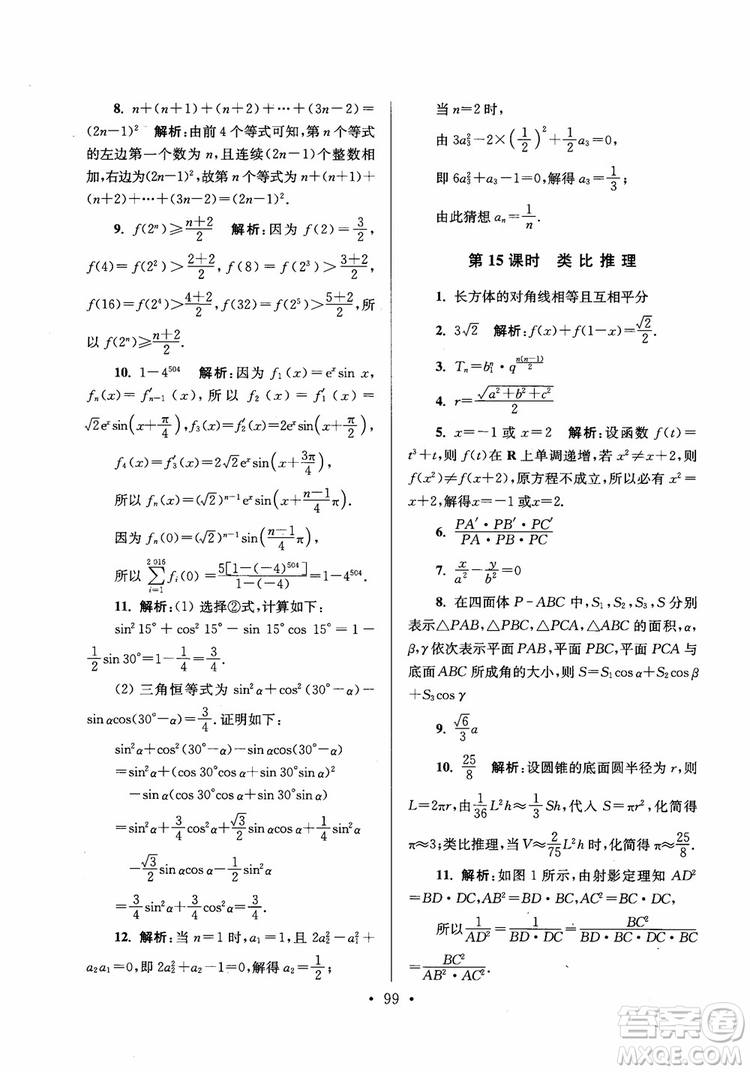 8. n+(n+1)+(n+2)+…+(3n-2)=
(2n-1)²　解析:由前 4 个等式可知,第 n 个等式
的左边第一个数为 n,且连续(2n-1)个整数相
加,右边为(2n-1)²,故第 n 个等式为 n+(n+1)+
(n+2)+…+(3n-2)=(2n-1)².
9. f(2ⁿ)≥(n+2)/2　解析:因为 f(2)=3/2,
f(4)=f(2²)>(2+2)/2,f(8)=f(2³)>(3+2)/2,
f(16)=f(2⁴)>(4+2)/2,f(32)=f(2⁵)>(5+2)/2,所
以 f(2ⁿ)≥(n+2)/2.
10. 1-4⁵⁰⁴　解析:因为 f₁(x)=eˣsin x,
fₙ(x)=f′ₙ₋₁(x),所以 f₂(x)=f′₁(x)=
√2eˣsin(x+π/4),f₃(x)=f′₂(x)=2eˣsin(x+2π/4),
f₄(x)=f′₃(x)=2√2eˣsin(x+3π/4),
所以 fₙ(x)=(√2)ⁿ⁻¹eˣsin(x+(n-1)/4 π),
因为 fₙ(0)=(√2)ⁿ⁻¹sin((n-1)/4 π),
所以 ∑(i=1→2 016) fᵢ(0)=5[1-(-4)⁵⁰⁴]/(1-(-4))=1-4⁵⁰⁴.
11. 解析:(1) 选择②式,计算如下:
sin²15°+cos²15°-sin 15°cos 15°=1-
1/2 sin 30°=1-1/4=3/4.
(2) 三角恒等式为 sin²α+cos²(30°-α)-
sin αcos(30°-α)=3/4.证明如下:
sin²α+cos²(30°-α)-sin αcos(30°-α)
=sin²α+(cos 30°cos α+sin 30°sin α)²
-sin α(cos 30°cos α+sin 30°sin α)
=sin²α+3/4 cos²α+√3/2 sin αcos α+1/4 sin²α
-√3/2 sin αcos α-1/2 sin²α
=3/4 sin²α+3/4 cos²α=3/4.
12. 解析:当 n=1 时,a₁=1,且 2a₂²-a₁²+
a₂a₁=0,即 2a₂²+a₂-1=0,解得 a₂=1/2;
当 n=2 时,
由 3a₃²-2×(1/2)²+1/2 a₃=0,
即 6a₃²+a₃-1=0,解得 a₃=1/3;
由此猜想 aₙ=1/n.
第 15 课时　类 比 推 理
1. 长方体的对角线相等且互相平分
2. 3√2　解析:f(x)+f(1-x)=√2/2.
3. Tₙ=b₁ⁿ·q^(n(n-1)/2)
4. r=√(a²+b²+c²)/2
5. x=-1 或 x=2　解析:设函数 f(t)=
t³+t,则 f(t)在 R 上单调递增,若 x²≠x+2,则
f(x²)≠f(x+2),原方程不成立,所以必有 x²=
x+2,解得x=-1或x=2.
6. (PA′·PB′·PC′)/(PA·PB·PC)
7. x/a²-y/b²=0
8. 在四面体 P-ABC 中,S₁,S₂,S₃,S 分别
表示△PAB,△PBC,△PCA,△ABC 的面积,α,
β,γ 依次表示平面 PAB,平面 PBC,平面 PCA 与
底面 ABC 所成角的大小,则 S=S₁cos α+S₂cos β
+S₃cos γ
9. √6/3 a
10. 25/8　解析:设圆锥的底面圆半径为 r,则
L=2πr,由 1/36 L²h≈1/3 Sh,代入 S=πr²,化简得
π≈3;类比推理,V≈2/75 L²h时,化简得 π≈25/8.
11. 解析:如图 1 所示,由射影定理知 AD²
=BD·DC,AB²=BD·BC,AC²=BC·DC,
所以 1/AD²=1/(BD·DC)=BC²/(BD·BC·DC·BC)
=BC²/(AB²·AC²).
· 99 ·
答案卷
MXQE.COM